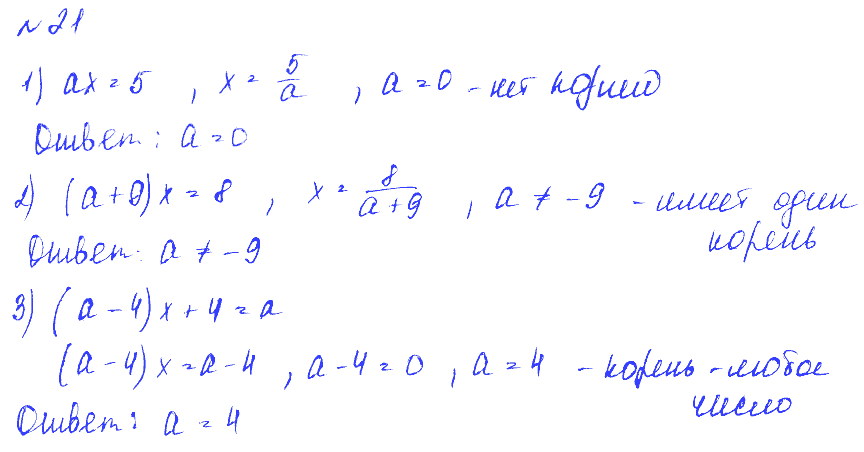 № 21
1) ax = 5 , x = 5/a , a = 0 - нет корней
Ответ: a = 0
2) (a+9)x = 8 , x = 8/(a+9) , a ≠ -9 - имеет один
корень
Ответ: a ≠ -9
3) (a-4)x + 4 = a
(a-4)x = a-4 , a-4 = 0 , a = 4 - корень - любое
число
Ответ: a = 4